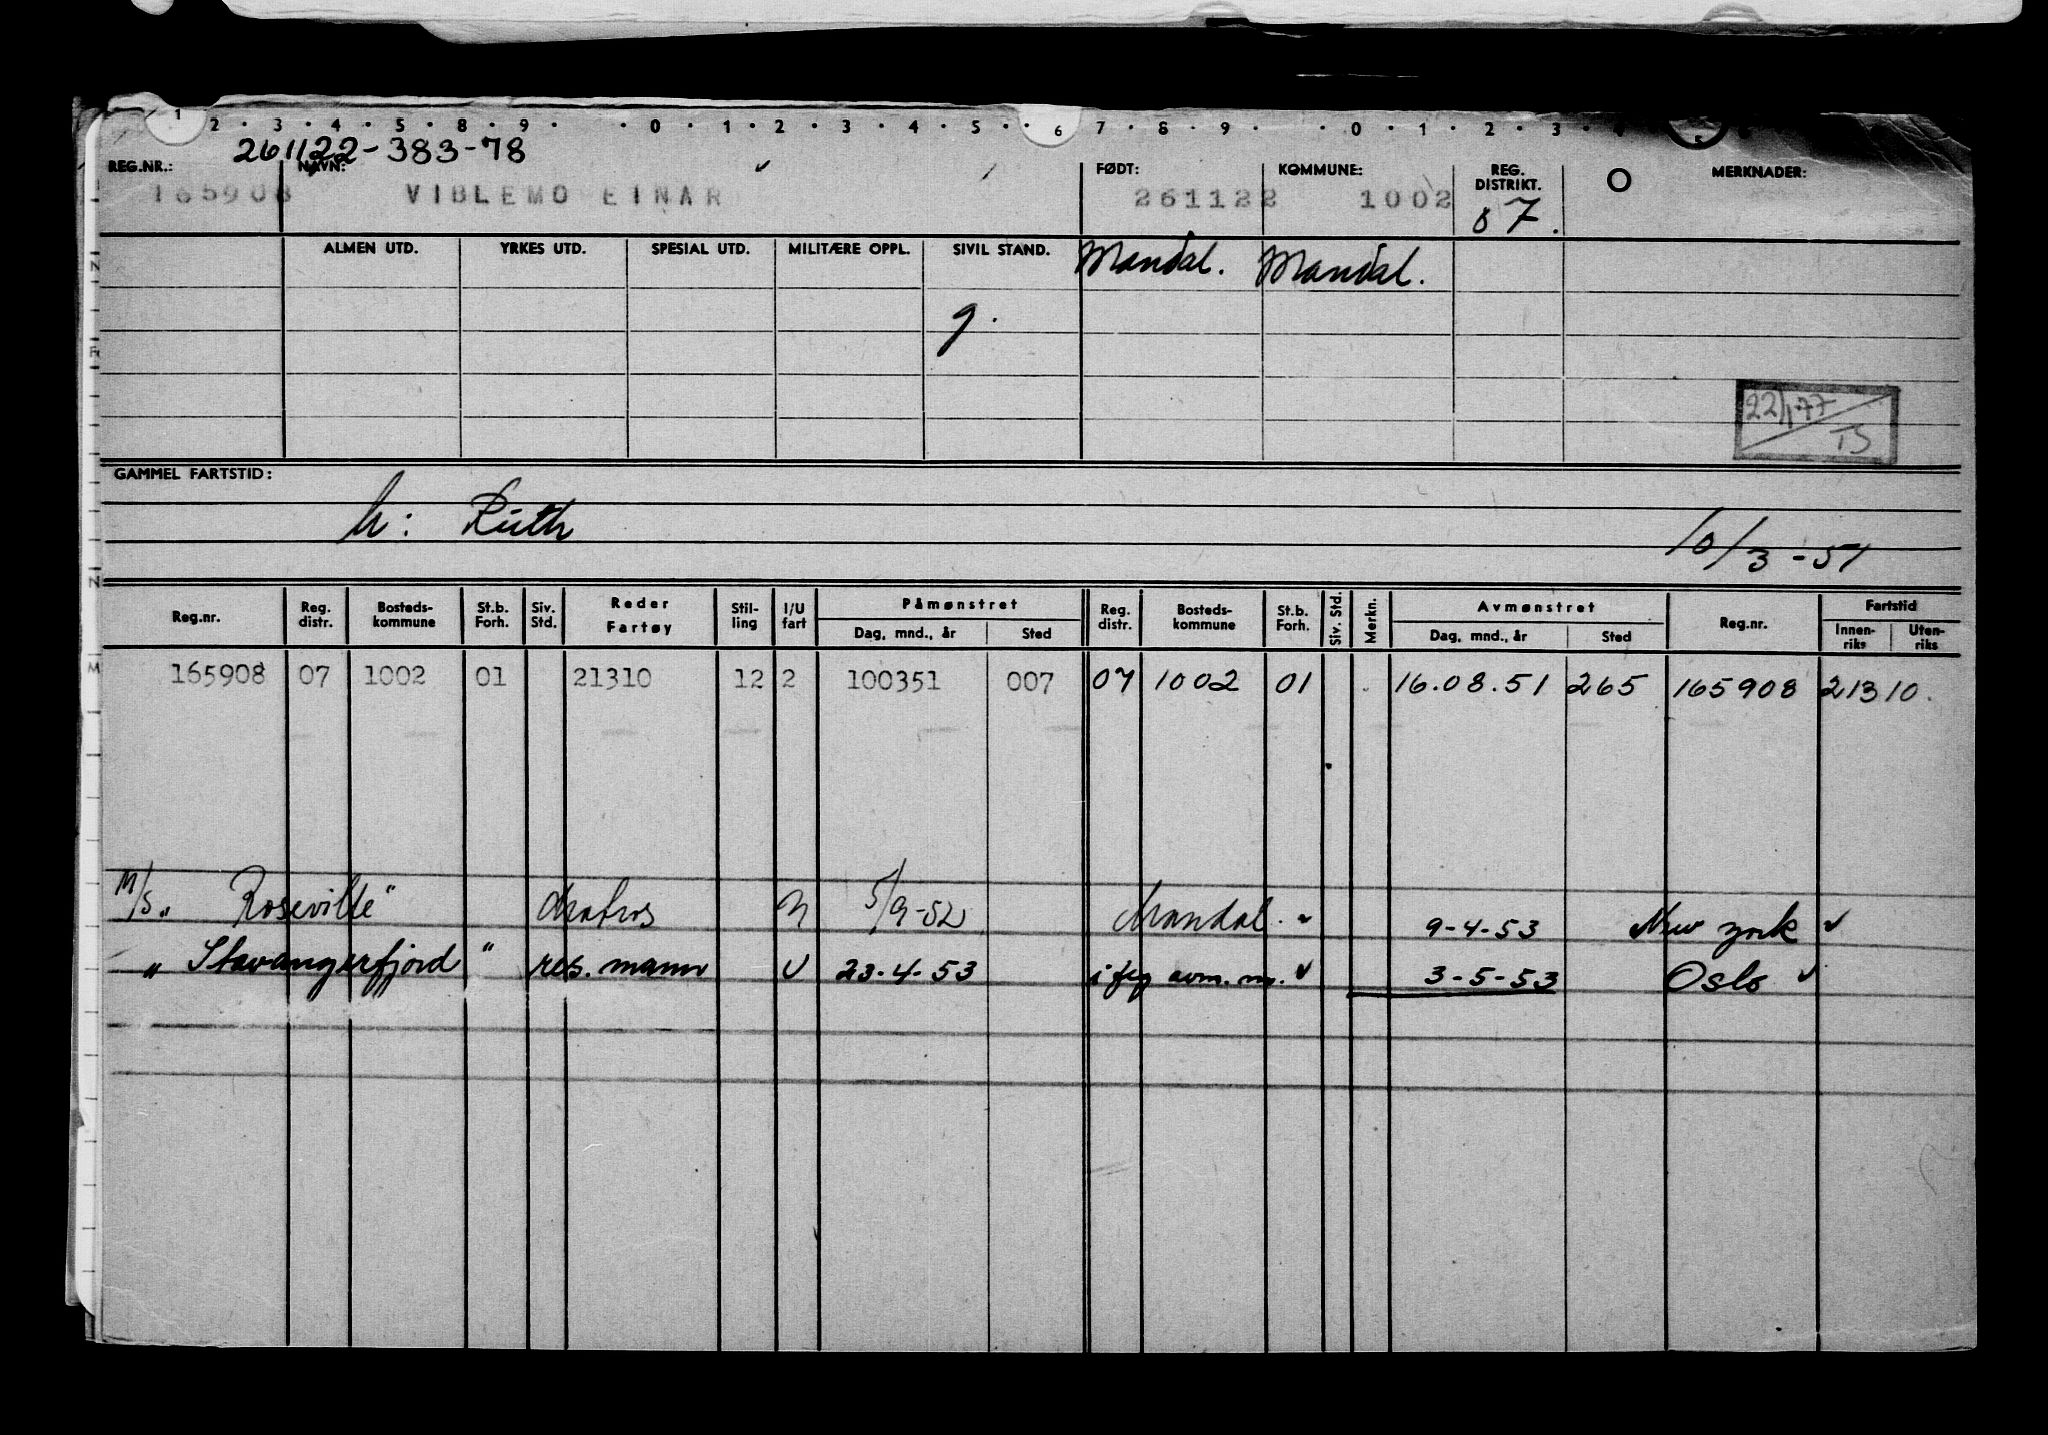 1 2 · 3 · 4 · 5 · 8 · 9 · · 0 · 1 · 2 · 3 · 4 · 5 · · 6 7 · 8 · 9 · · 0 · 1 · 2 · 3 · 4 · 5
261122-383-78
REG.NR.: NAVN: FØDT: KOMMUNE: REG. DISTRIKT. MERKNADER:
165908 VIBLEMO EINAR 261122 1002 07.
ALMEN UTD. YRKES UTD. SPESIAL UTD. MILITÆRE OPPL. SIVIL STAND. Mandal. Mandal.
g.
22/1-77
TS
GAMMEL FARTSTID:
h: Ruth
10/3-51
Reg.nr. Reg. distr. Bosteds-kommune St.b. Forh. Siv. Std. Reder Fartøy Stil-ling I/U fart Påmønstret Reg. distr. Bosteds-kommune St.b. Forh. Siv. Std. Merkn. Avmønstret Reg.nr. Fartstid
Dag, mnd., år Sted Dag, mnd., år Sted Innen-riks Uten-riks
165908 07 1002 01 21310 12 2 100351 007 07 1002 01 16.08.51 265 165908 21310.
M/S „Roseville" Matros U 5/9-52 Mandal. 9-4-53 New York
„ Stavangerfjord" res. mann U 23-4-53 i flg avm. m. 3-5-53 Oslo